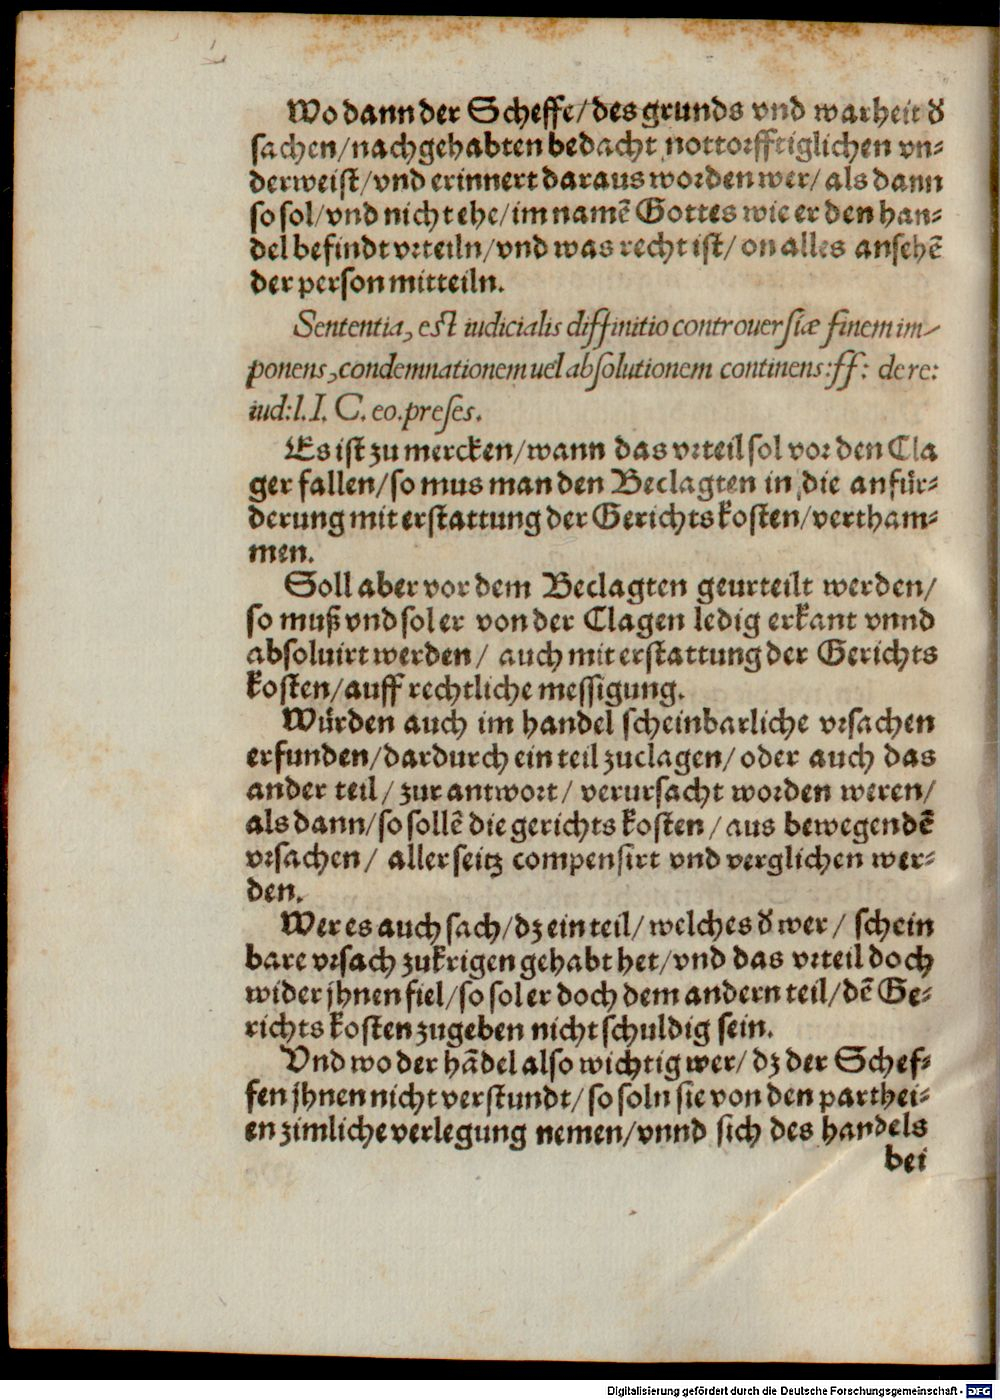 Wo dann der Scheffe/des grunds vnd warheit d̕
sachen/nachgehabten bedacht nottorfftiglichen vn⸗
derweist/vnd erinnert daraus worden wer/als dann
so sol/vnd nicht ehe/im namẽ Gottes wie er den han⸗
del befindt vrteiln/vnd was recht ist/on alles ansehẽ
der person mitteiln.
Sententia, est iudicialis diffinitio controuersiæ finem im-
ponens, condemnationem uel absolutionem continens: ff: de re:
iud: l. I. C. eo. preses.
Es ist zu mercken/wann das vrteil sol vor den Cla
ger fallen/so mus man den Beclagten in die anfür⸗
derung mit erstattung der Gerichts kosten/vertham⸗
men.
Soll aber vor dem Beclagten geurteilt werden/
so muß vnd sol er von der Clagen ledig erkant vnnd
absoluirt werden/ auch mit erstattung der Gerichts
kosten/auff rechtliche messigung.
Würden auch im handel scheinbarliche vrsachen
erfunden/dardurch ein teil zuclagen/oder auch das
ander teil/zur antwort/verursacht worden weren/
als dann/so sollẽ die gerichts kosten/aus bewegendẽ
vrsachen/ allerseitz compensirt vnd verglichen wer⸗
den.
Wer es auch sach/dz ein teil/welches d̕ wer/ schein
bare vrsach zukrigen gehabt het/vnd das vrteil doch
wider jhnen fiel/so sol er doch dem andern teil/dẽ Ge⸗
richts kosten zugeben nicht schuldig sein.
Vnd wo der hãdel also wichtig wer/dz der Schef⸗
fen jhnen nicht verstundt/so soln sie von den parthei⸗
en zimliche verlegung nemen/vnnd sich des handels
bei
Digitalisierung gefördert durch die Deutsche Forschungsgemeinschaft - DFG